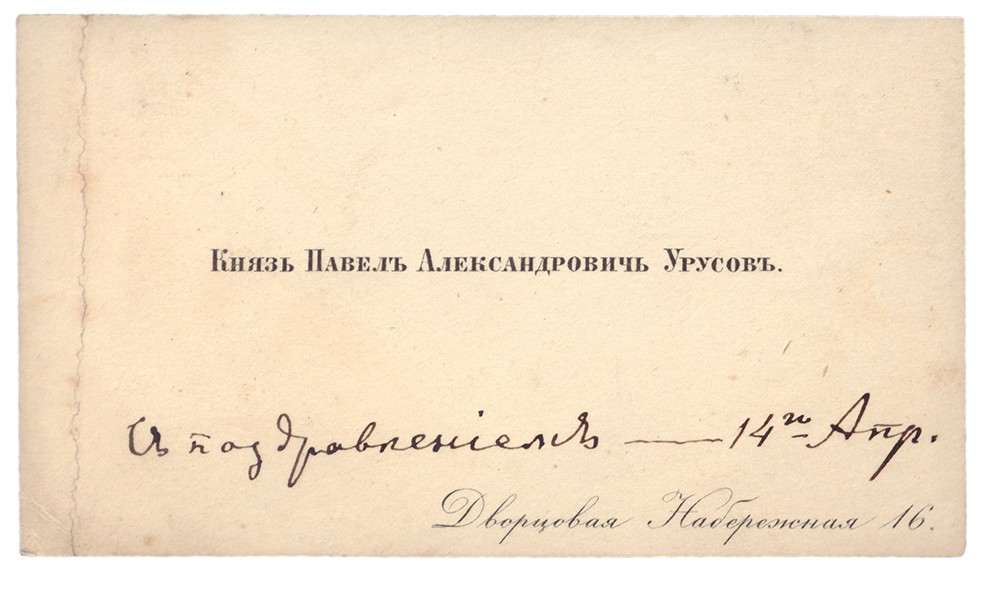 Князь Павелъ Александровичь Урусовъ.
Съ поздравленіемъ — 14го Апр.
Дворцовая Набережная 16.